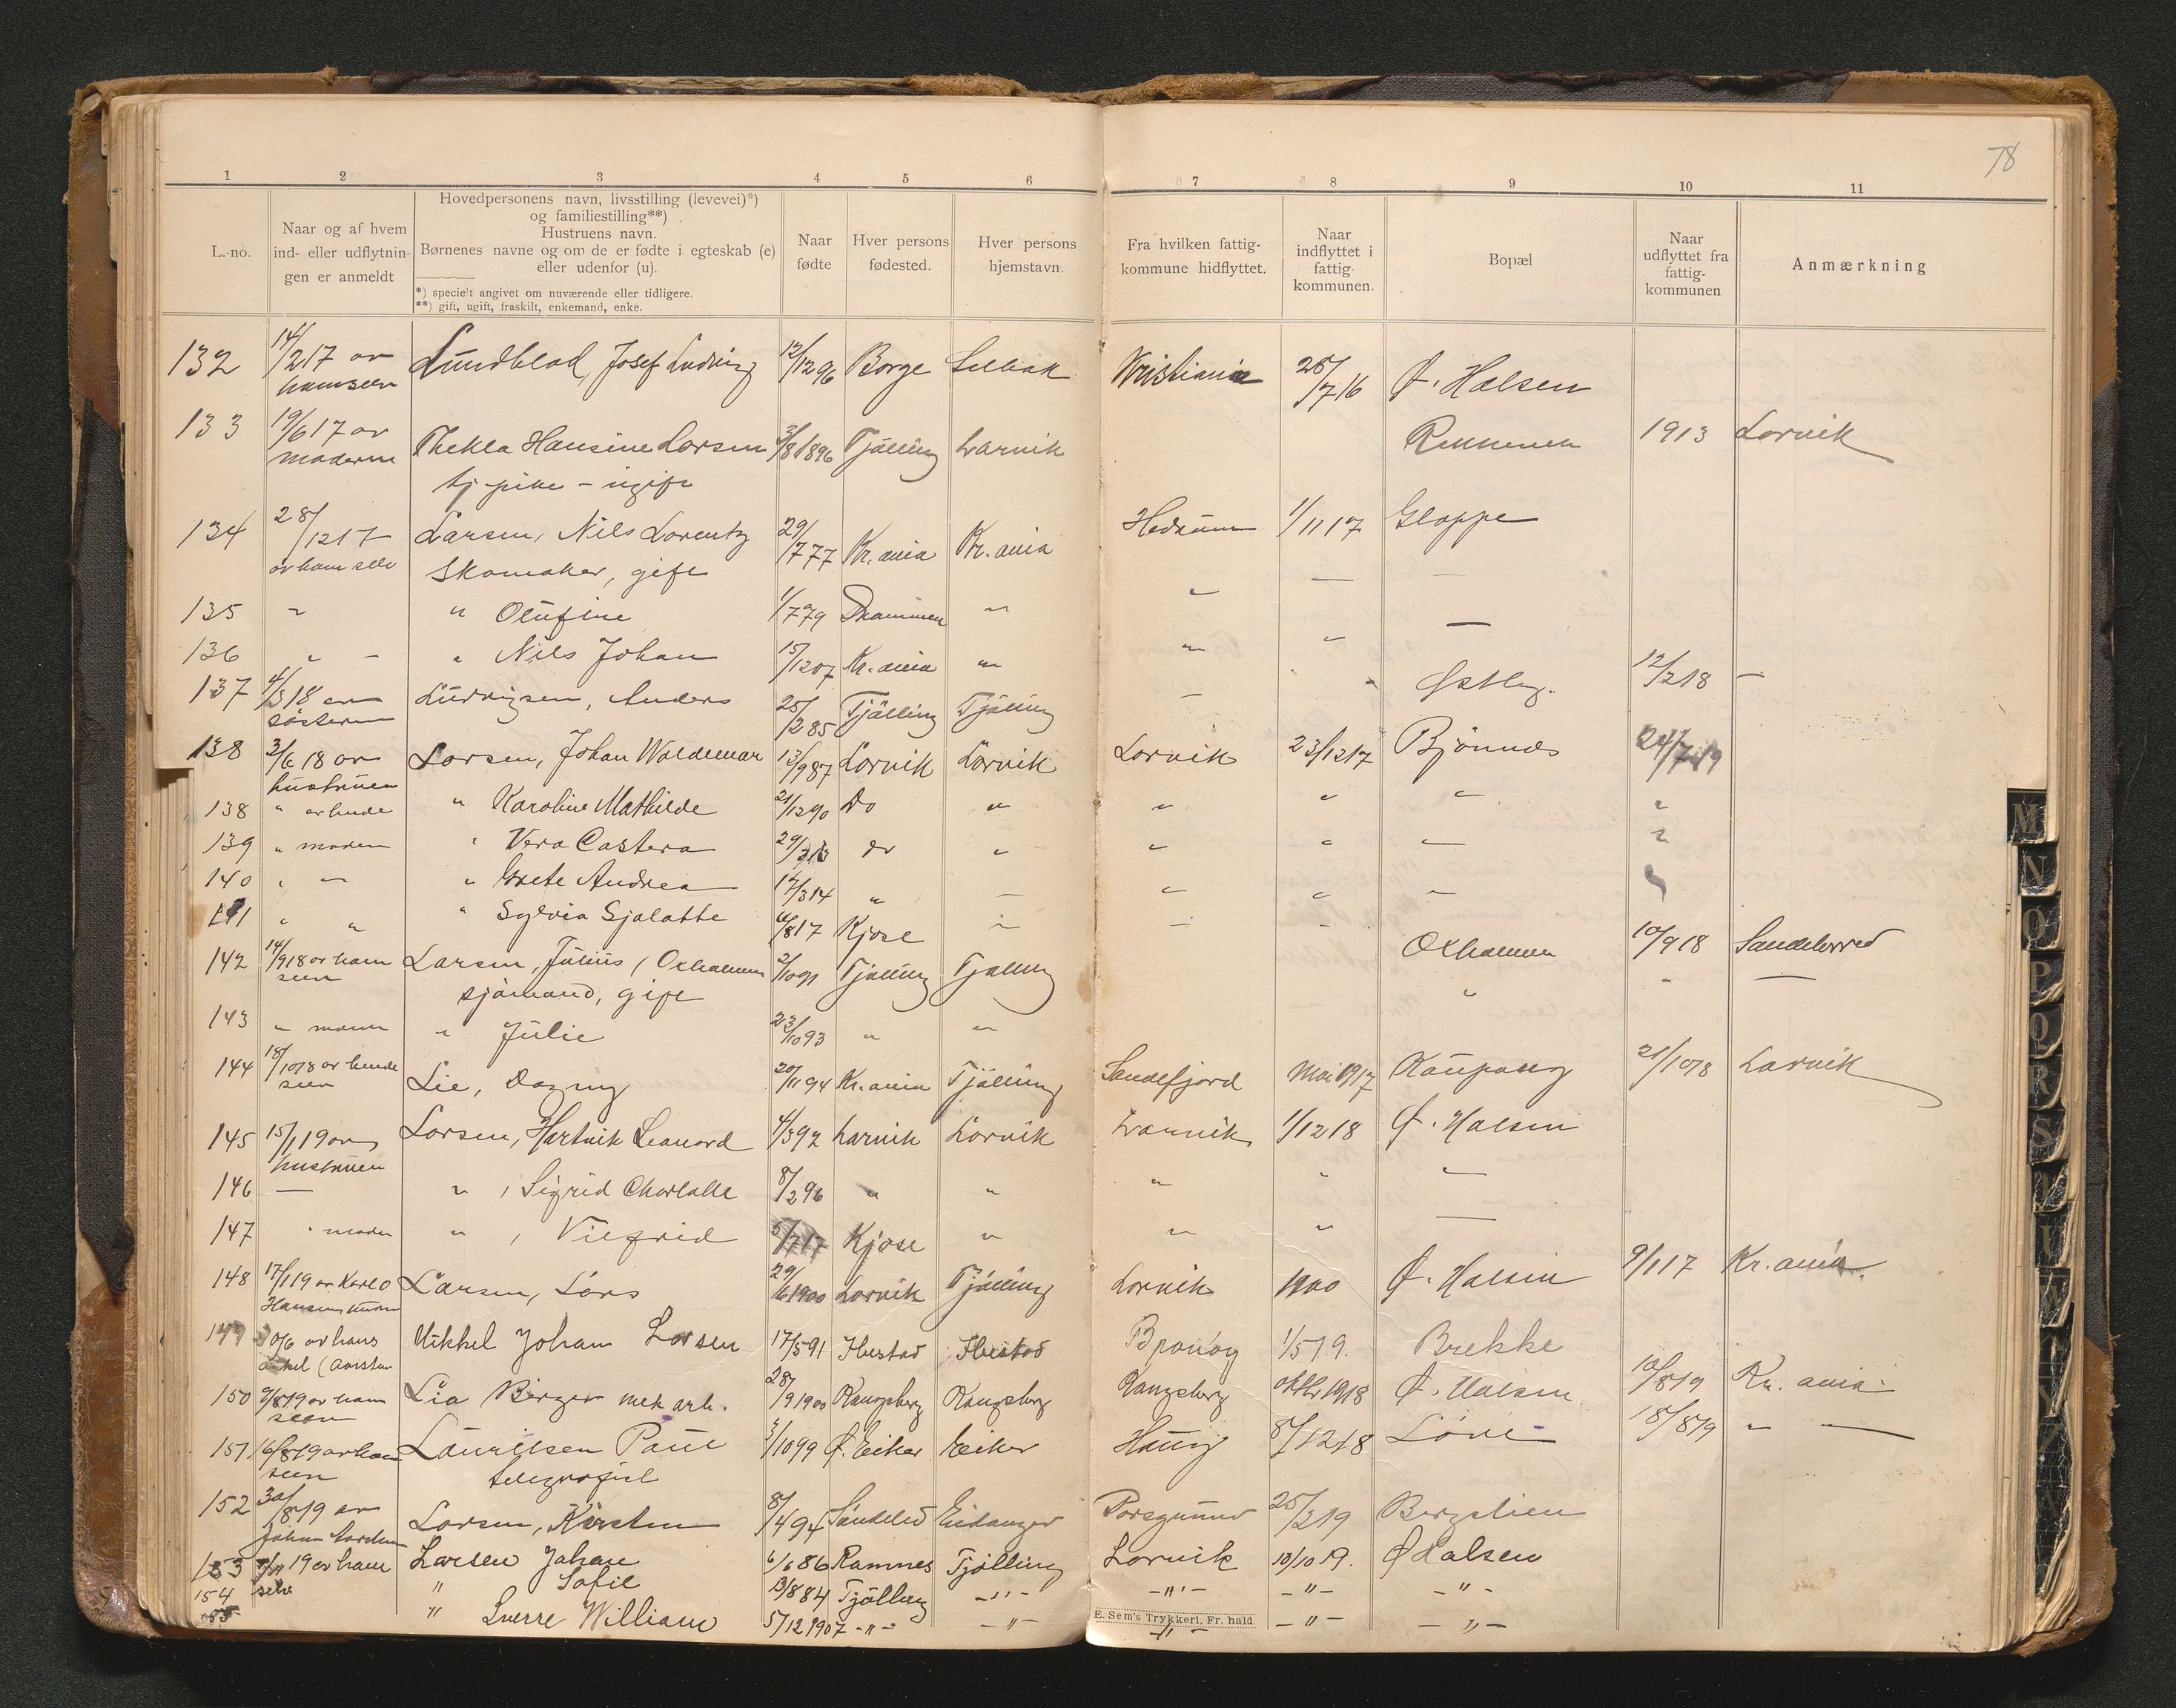 78
1 2 3 4 5 6 7 8 9 10 11
L.-no.
Naar og af hvem
ind- eller udflytnin-
gen er anmeldt
Hovedpersonens navn, livsstilling (levevei)*)
og familiestilling**)
Hustruens navn.
Børnenes navne og om de er fødte i egteskab (e)
eller udenfor (u).
*) specielt angivet om nuværende eller tidligere.
**) gift, ugift, fraskilt, enkemand, enke.
Naar
fødte
Hver persons
fødested.
Hver persons
hjemstavn.
Fra hvilken fattig-
kommune hidflyttet.
Naar
indflyttet i
fattig-
kommunen.
Bopæl
Naar
udflyttet fra
fattig-
kommunen
Anmærkning
132 14/2 17 av Lundblad, Josef Ludvig 12/12 96 Borge Selbak Kristiania 28/7 16 Ø. Halsen
ham selv
133 19/6 17 av Thekla Hansine Larsen 3/8 1896 Tjølling Larvik 1913 Larvik
moderen tj. pike - ugift
134 28/12 17 Larsen, Nils Lorentz 29/7 77 Kr.ania Kr.ania Hedrum 1/11 17 Gloppe
av ham selv Skomaker, gift
135 " " Olufine 1/7 79 Drammen " " —
136 " - " Nils Johan 15/12 07 Kr.ania " " " —
137 4/3 18 av Ludvigsen, Anders 25/2 85 Tjølling Tjølling — Østby. 12/2 18 —
søsteren
138 3/6 18 av Larsen, Johan Waldemar 13/9 87 Larvik Larvik Larvik 23/12 17 Bjønnes 24/7 19
hustruen
138 " av hende " Karoline Mathilde 21/12 90 Do " " " " "
139 " moren " Vera Castera 29/3 13 do " " " — "
140 " — " Grete Andrea 17/3 14 " — " " —
141 " " " Sylvia Sjalotte 6/8 17 Kjose — — -
142 14/9 18 av ham Larsen, Julius (Oxholmen 2/10 91 Tjølling Tjølling Oxholmen 10/9 18 Sandeherred
selv sjømand, gift " - —
143 " " Julie 23/10 93 " "
144 18/10 18 av hende Lie, Dagny 20/11 94 Kr.ania Tjølling Sandefjord Mai 1917 Kaupang 21/10 18 Larvik
selv
145 15/1 19 av Larsen, Hartvik Leonard 4/3 92 Larvik Larvik Larvik 1/12 18 Ø. Halsen
hustruen
146 — " , Sigrid Charlotte 8/2 96 " " " " "
147 " moder " , Viegrid 5/7 17 Kjose " " " —
148 17/1 19 av Karl O Larsen, Lars 29/6 1900 Larvik Tjølling Larvik 1900 Ø. Halsen 9/1 17 Kr.ania.
149 30/6 av hans Mikkel Johan Larsen 17/5 91 Hustad Hustad Brønøy 1/5 19. Brekke
onkel
150 9/8 19 av ham Lia Birger mek arb. 28/9 1900 Kongsberg Kongsberg Kongsberg oktbr 1918 Ø. Halsen 10/8 19 Kr. ania.
selv
151 16/8 19 av ham Lauritsen Paul 3/10 99 Ø. Eiker Eiker Haug 8/12 18 Løve 18/8 19 " —
selv telegrafist
152 30/8 19 av Larsen, Karsten 8/4 94 Søndeled Eidanger Porsgrund 25/2 19 Bergslien
153 19 av ham Larsen Johan 6/6 86 Ramnes Tjølling Larvik 10/10 19. Ø Halsen
154 selv " Sofie 13/8 84 Tjølling -"- -"- -"- -"-
155 " Sverre William 5/12 1907 -"- -"- -"- -"- -"-
E. Sem's Trykkeri, Fr. hald.
M N O P Q R S T U W Y Z